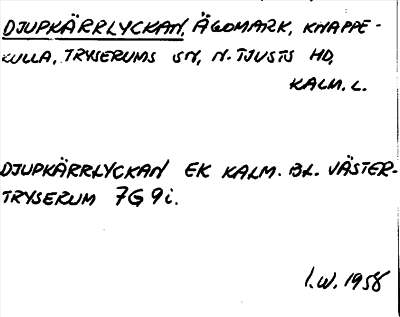 DJUPKÄRRLYCKAN, ÄGOMARK, KNAPPE-
KULLA, TRYSERUMS SN, N. TJUSTS HD,
KALM. L.
DJUPKÄRRLYCKAN EK KALM. BL. VÄSTER-
TRYSERUM 7G 9i.
I.W. 1958